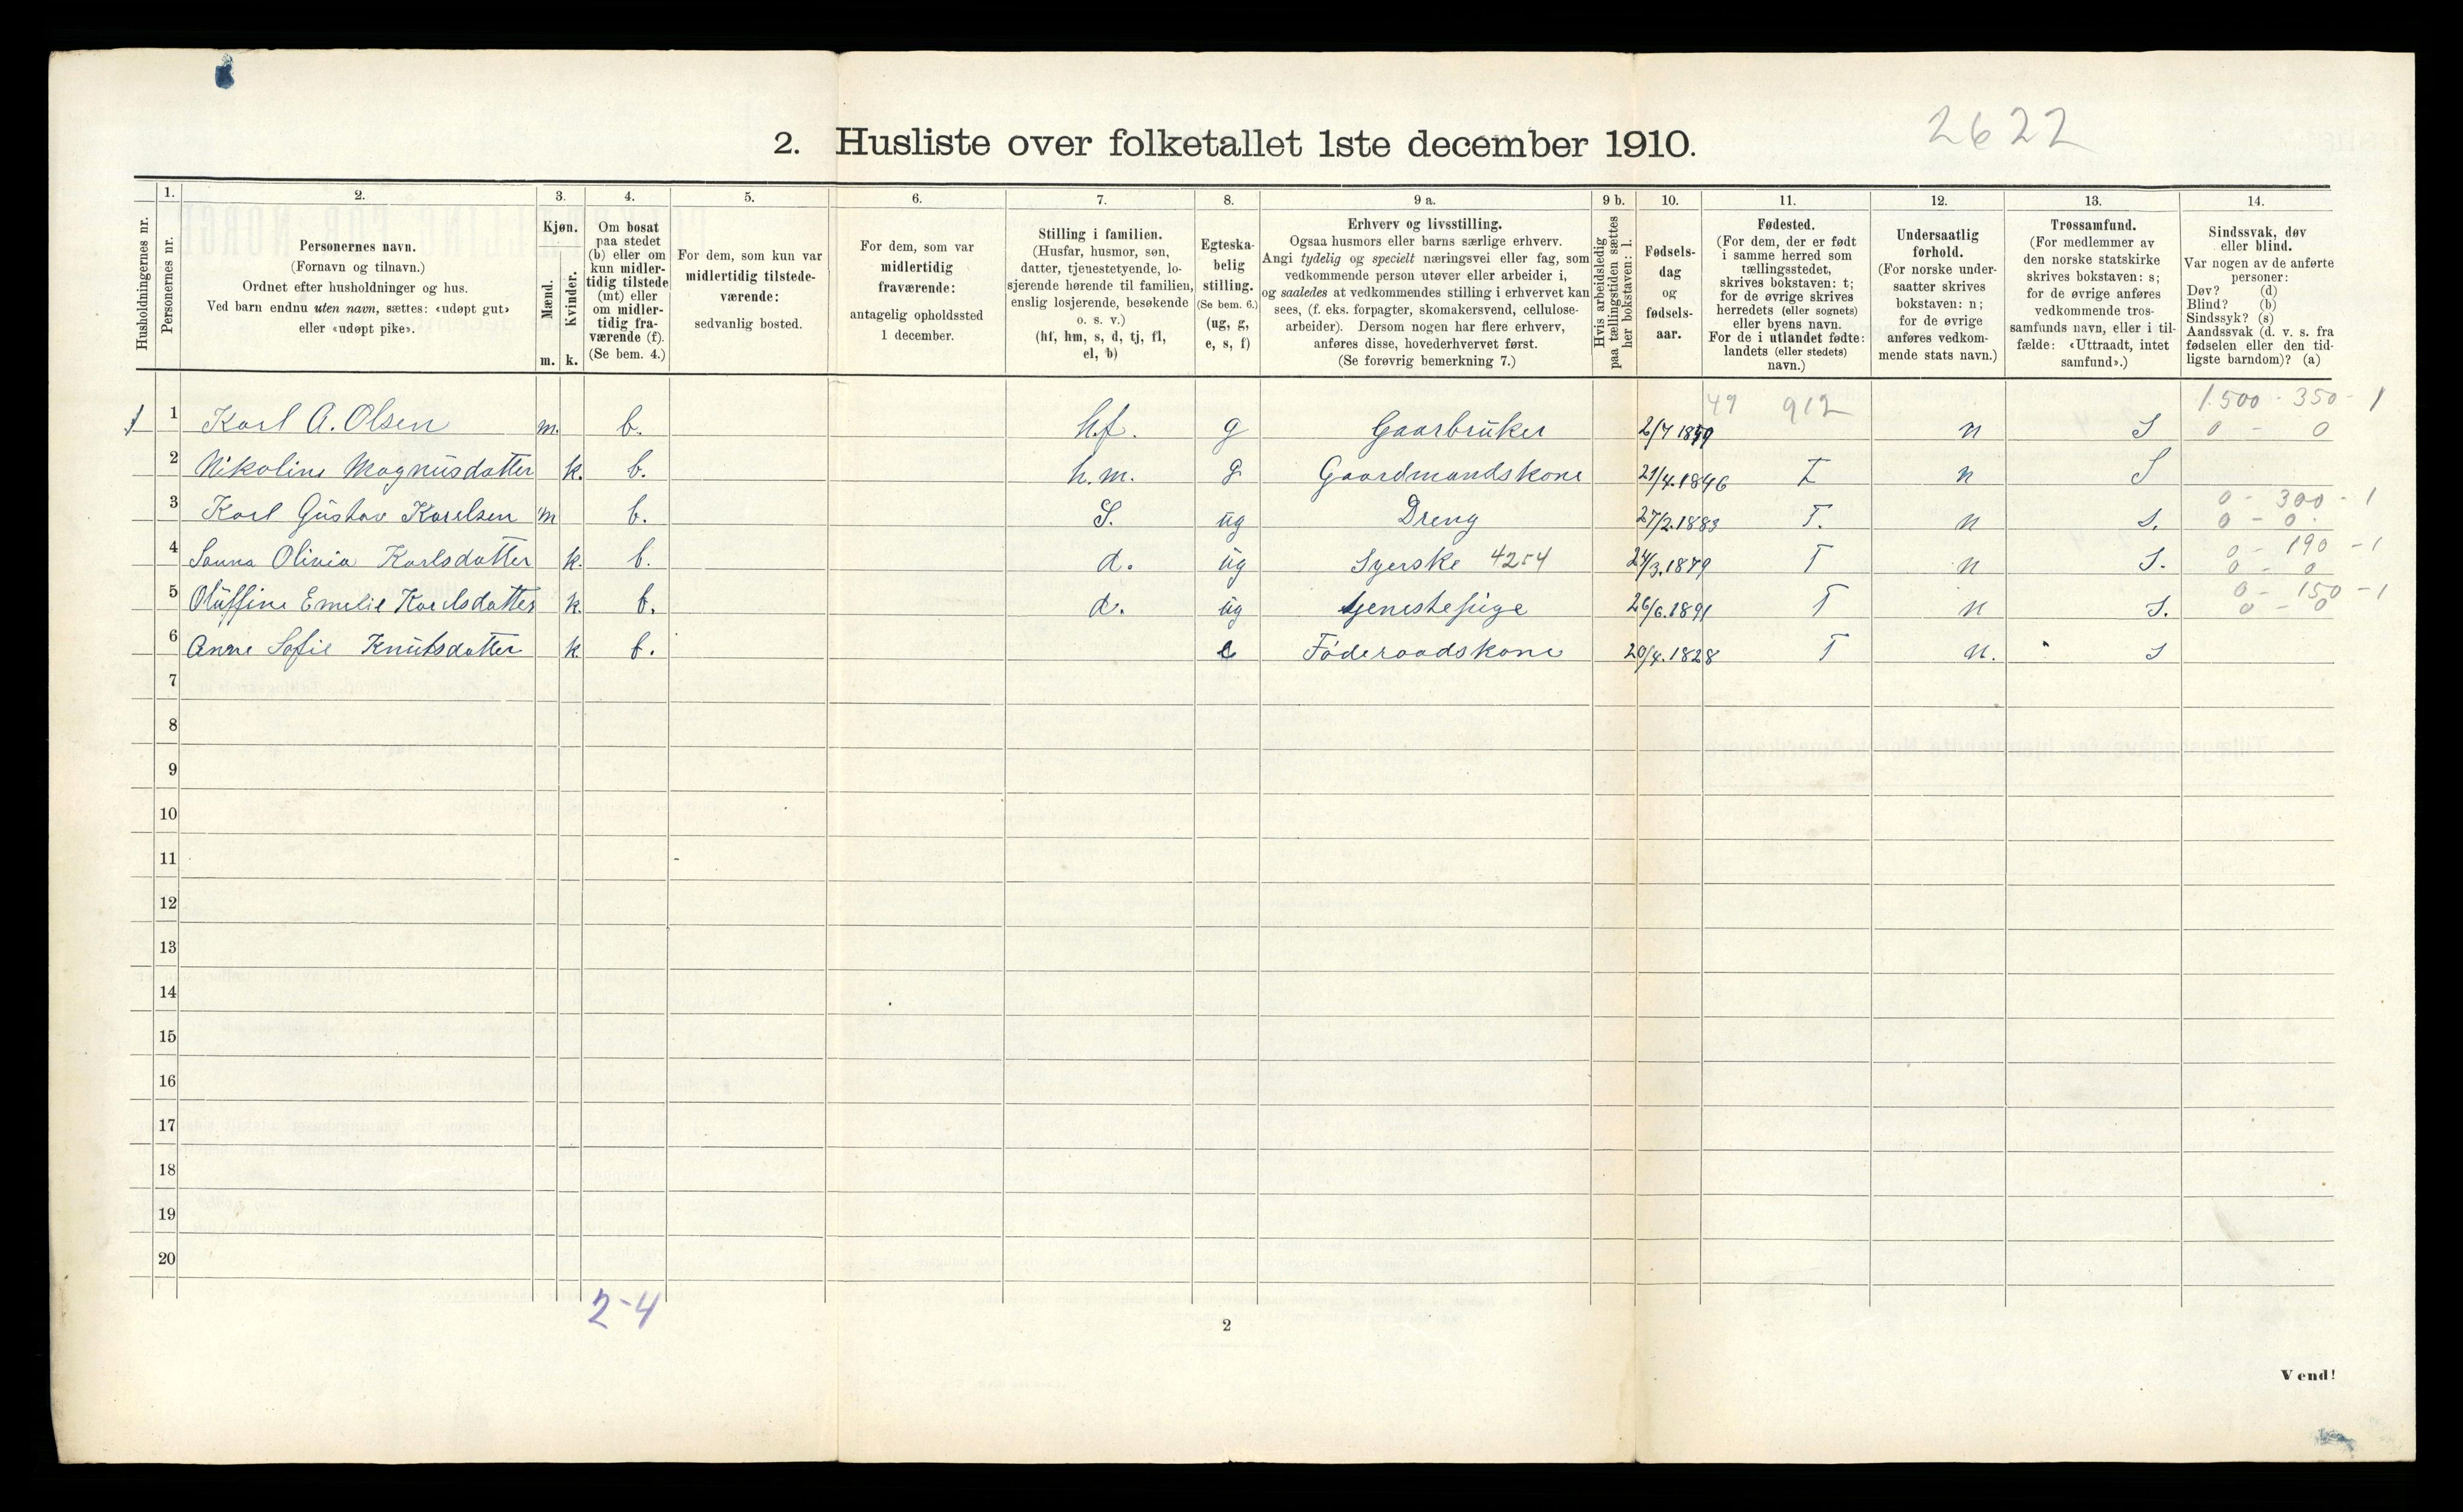 2622
2. Husliste over folketallet 1ste december 1910.
Husholdningernes nr.
1. Personernes nr.
2. Personernes navn.
(Fornavn og tilnavn.)
Ordnet efter husholdninger og hus.
Ved barn endnu uten navn, sættes: «udøpt gut»
eller «udøpt pike».
3. Kjøn.
Mænd. m.
Kvinder. k.
4. Om bosat
paa stedet
(b) eller om
kun midler-
tidig tilstede
(mt) eller
om midler-
tidig fra-
værende (f).
(Se bem. 4.)
5. For dem, som kun var
midlertidig tilstede-
værende:
sedvanlig bosted.
6. For dem, som var
midlertidig
fraværende:
antagelig opholdssted
1 december.
7. Stilling i familien.
(Husfar, husmor, søn,
datter, tjenestetyende, lo-
sjerende hørende til familien,
enslig losjerende, besøkende
o. s. v.)
(hf, hm, s, d, tj, fl,
el, b)
8. Egteska-
belig
stilling.
(Se bem. 6.)
(ug, g,
e, s, f)
9 a. Erhverv og livsstilling.
Ogsaa husmors eller barns særlige erhverv.
Angi tydelig og specielt næringsvei eller fag, som
vedkommende person utøver eller arbeider i,
og saaledes at vedkommendes stilling i erhvervet kan
sees, (f. eks. forpagter, skomakersvend, cellulose-
arbeider). Dersom nogen har flere erhverv,
anføres disse, hovederhvervet først.
(Se forøvrig bemerkning 7.)
9 b. Hvis arbeidsledig
paa tællingstiden sættes
her bokstaven: l.
10. Fødsels-
dag
og
fødsels-
aar.
11. Fødested.
(For dem, der er født
i samme herred som
tællingsstedet,
skrives bokstaven: t;
for de øvrige skrives
herredets (eller sognets)
eller byens navn.
For de i utlandet fødte:
landets (eller stedets)
navn.)
12. Undersaatlig
forhold.
(For norske under-
saatter skrives
bokstaven: n;
for de øvrige
anføres vedkom-
mende stats navn.)
13. Trossamfund.
(For medlemmer av
den norske statskirke
skrives bokstaven: s;
for de øvrige anføres
vedkommende tros-
samfunds navn, eller i til-
fælde: «Uttraadt, intet
samfund».)
14. Sindssvak, døv
eller blind.
Var nogen av de anførte
personer:
Døv? (d)
Blind? (b)
Sindssyk? (s)
Aandssvak (d. v. s. fra
fødselen eller den tid-
ligste barndom)? (a)
49 912 1.500 - 350 - 1
1 1 Karl A. Olsen m. b. h.f. g Gaarbruker n S 0 - 0
2 Nikoline Magnusdatter k. b. h.m. g Gaardmandskone 21/4.1846 T n S
0 - 300 - 1
3 Karl Gustav Karelsen m b. S. ug Dreng 27/2.1883 T. n S. 0 - 0
0 - 190 - 1
4 Sanna Olivia Karlsdatter k. b. d. ug Syerske 4254 24/3.1879 T n S. 0 - 0
0 - 150 - 1
5 Oluffine Emelie Karlsdatter k. b. d. ug tjenestepige 26/6.1891 T n S. 0 - 0
6 Anne Sofie Knutsdatter k b. e Føderaadskone 20/4.1828 T n. S
7
8
9
10
11
12
13
14
15
16
17
18
19
20
2-4
2
Vend!